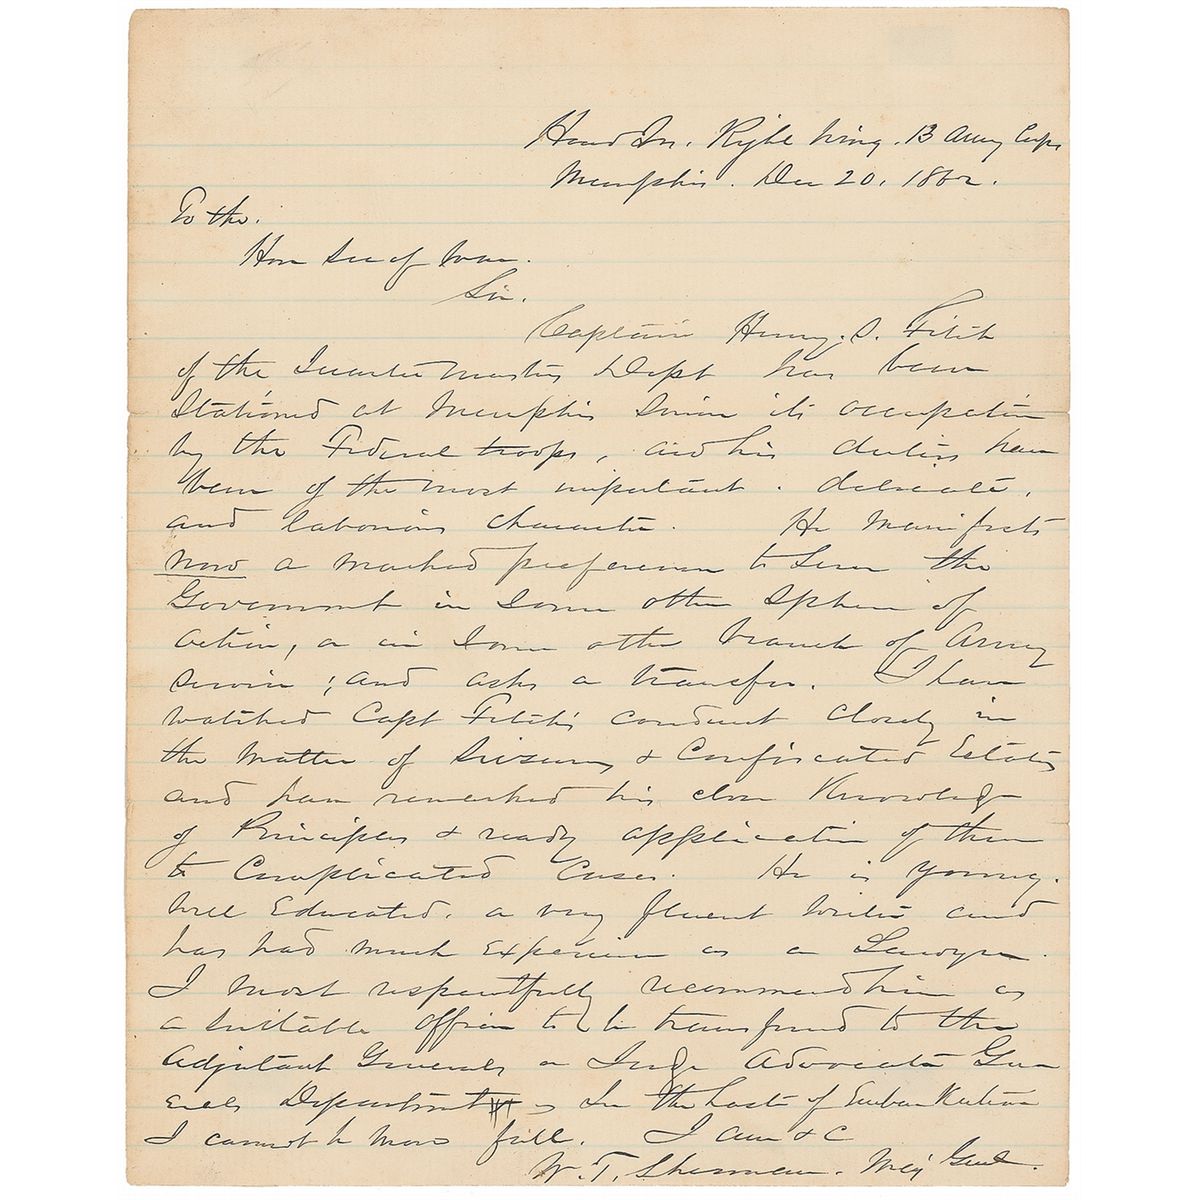 Head Qrs. Right Wing. 13 Army Corps
Memphis. Dec 20. 1862.
To the.
Hon Sec of War.
Sir.
Captain Henry. S. Fitch
of the Quarter Masters Dept has been
Stationed at Memphis Since its occupation
by the Federal troops, and his duties have
been of the most important. delicate,
and laborious character. He Manifests
now a marked preference to Serve the
Government in Some other Sphere of
action, or in Some other branch of Army
service; and asks a transfer. I have
watched Capt Fitch's conduct closely in
the matter of Seizures & Confiscated Estates
and have remarked his close Knowledge
of Principles & ready application of them
to Complicated Cases. He is young.
Well Educated. a very fluent writer and
has had much Experience as a Lawyer.
I most respectfully recommend him as
a suitable officer to be transferred to the
Adjutant Generals or Judge Advocate Gen
erals Department In the haste of Embarkation
I cannot be more full. I am &c
W. T. Sherman. Maj Genl.